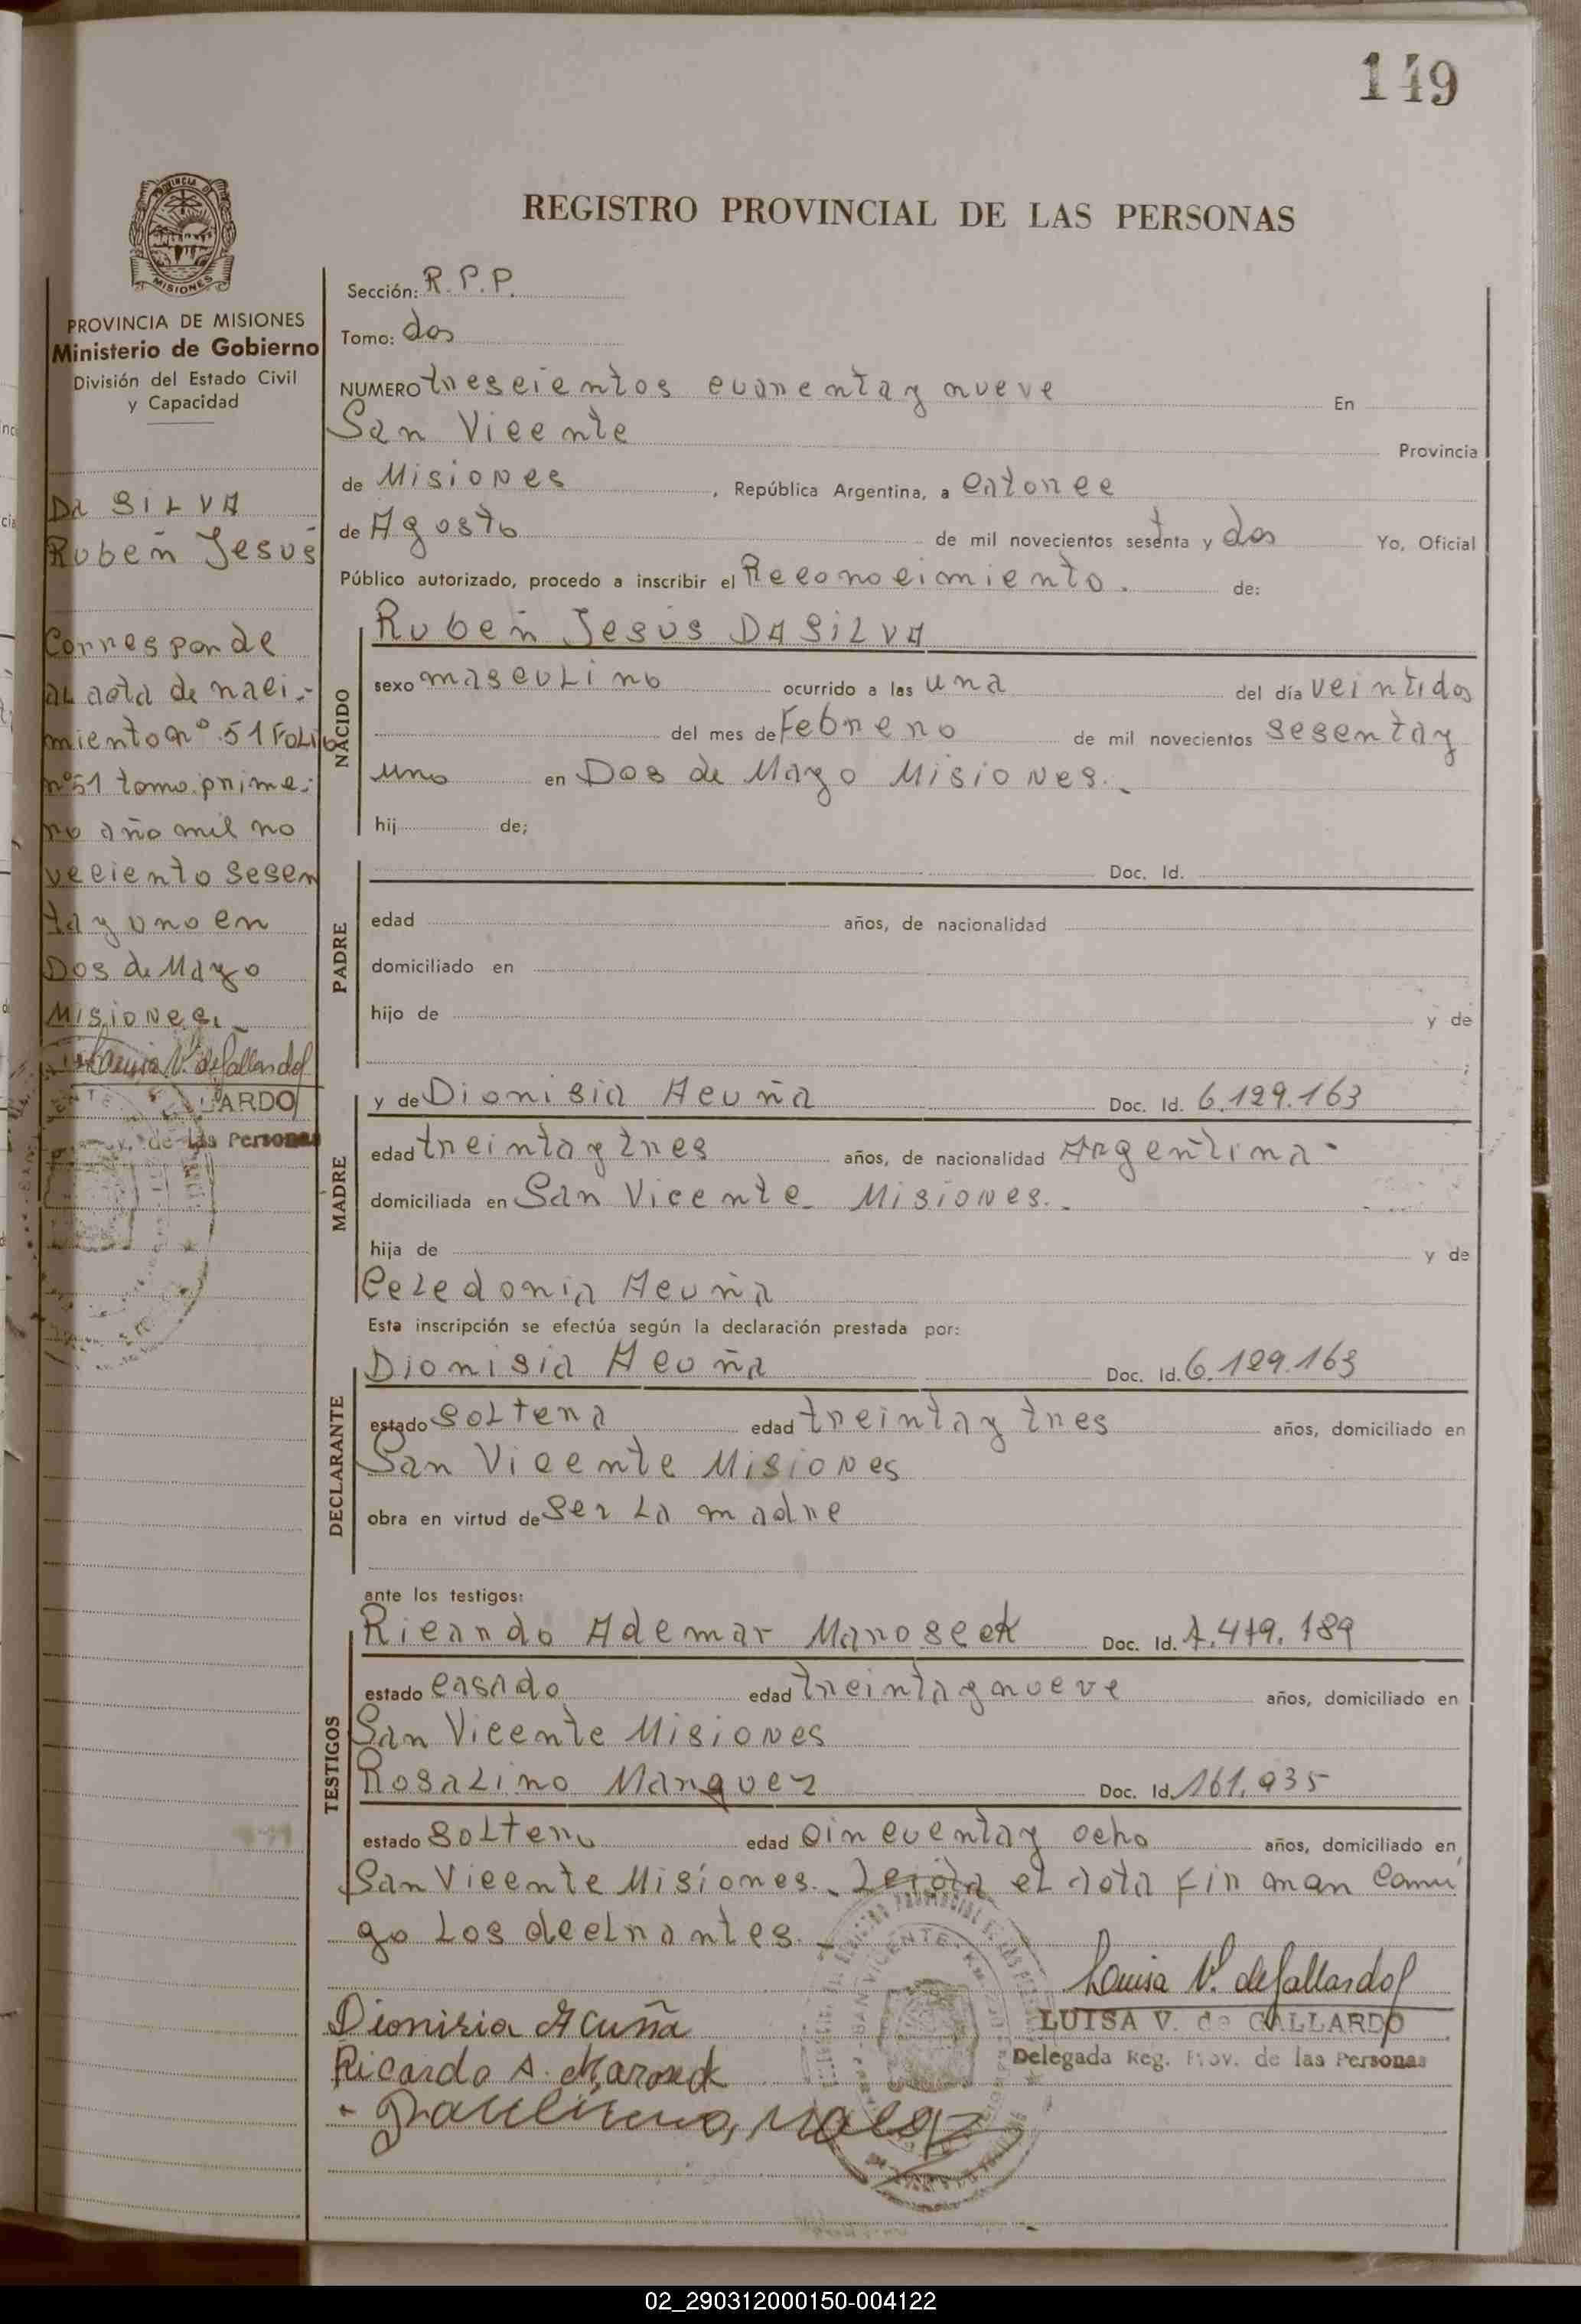 149
PROVINCIA DE MISIONES
REGISTRO PROVINCIAL DE LAS PERSONAS
PROVINCIA DE MISIONES
Ministerio de Gobierno
División del Estado Civil
y Capacidad
Da SILVA
Rubén Jesús
Corresponde
al acta de naci-
miento nº 51 Folio
nº 51 tomo prime-
ro año mil no
veciento sesen
ta y uno en
Dos de Mayo
Misiones.
Luisa V. de Gallardo
ARDO
de las Personas
Sección: R.P.P.
Tomo: dos
NUMERO trescientos cuarenta y nueve En
San Vicente Provincia
de Misiones, República Argentina, a catorce
de Agosto de mil novecientos sesenta y dos Yo, Oficial
Público autorizado, procedo a inscribir el Reconocimiento. de:
NACIDO
Rubén Jesús DA SILVA
sexo masculino ocurrido a las una del día veintidos
del mes de Febrero de mil novecientos sesenta y
uno en Dos de Mayo Misiones.
hij de;
PADRE
Doc. Id.
edad años, de nacionalidad
domiciliado en
hijo de y de
;
MADRE
y de Dionisia Acuña Doc. Id. 6.129.163
edad treinta y tres años, de nacionalidad Argentina
domiciliada en San Vicente Misiones.
hija de y de
Celedonia Acuña
Esta inscripción se efectúa según la declaración prestada por:
DECLARANTE
Dionisia Acuña Doc. Id. 6.129.163
estado soltera edad treinta y tres años, domiciliado en
San Vicente Misiones
obra en virtud de ser la madre
ante los testigos:
TESTIGOS
Ricardo Ademar Maroseck Doc. Id.
estado casado edad treinta y nueve años, domiciliado en
San Vicente Misiones
Rosalino Marquez Doc. Id. 161.935
estado soltero edad cincuenta y ocho años, domiciliado en
San Vicente Misiones. Leída el acta firman conmi
go los declrantes.
Luisa V. de Gallardo
LUISA V. de GALLARDO
Delegada Reg. Prov. de las Personas
Dionisia Acuña
Ricardo A.
02_290312000150-004122